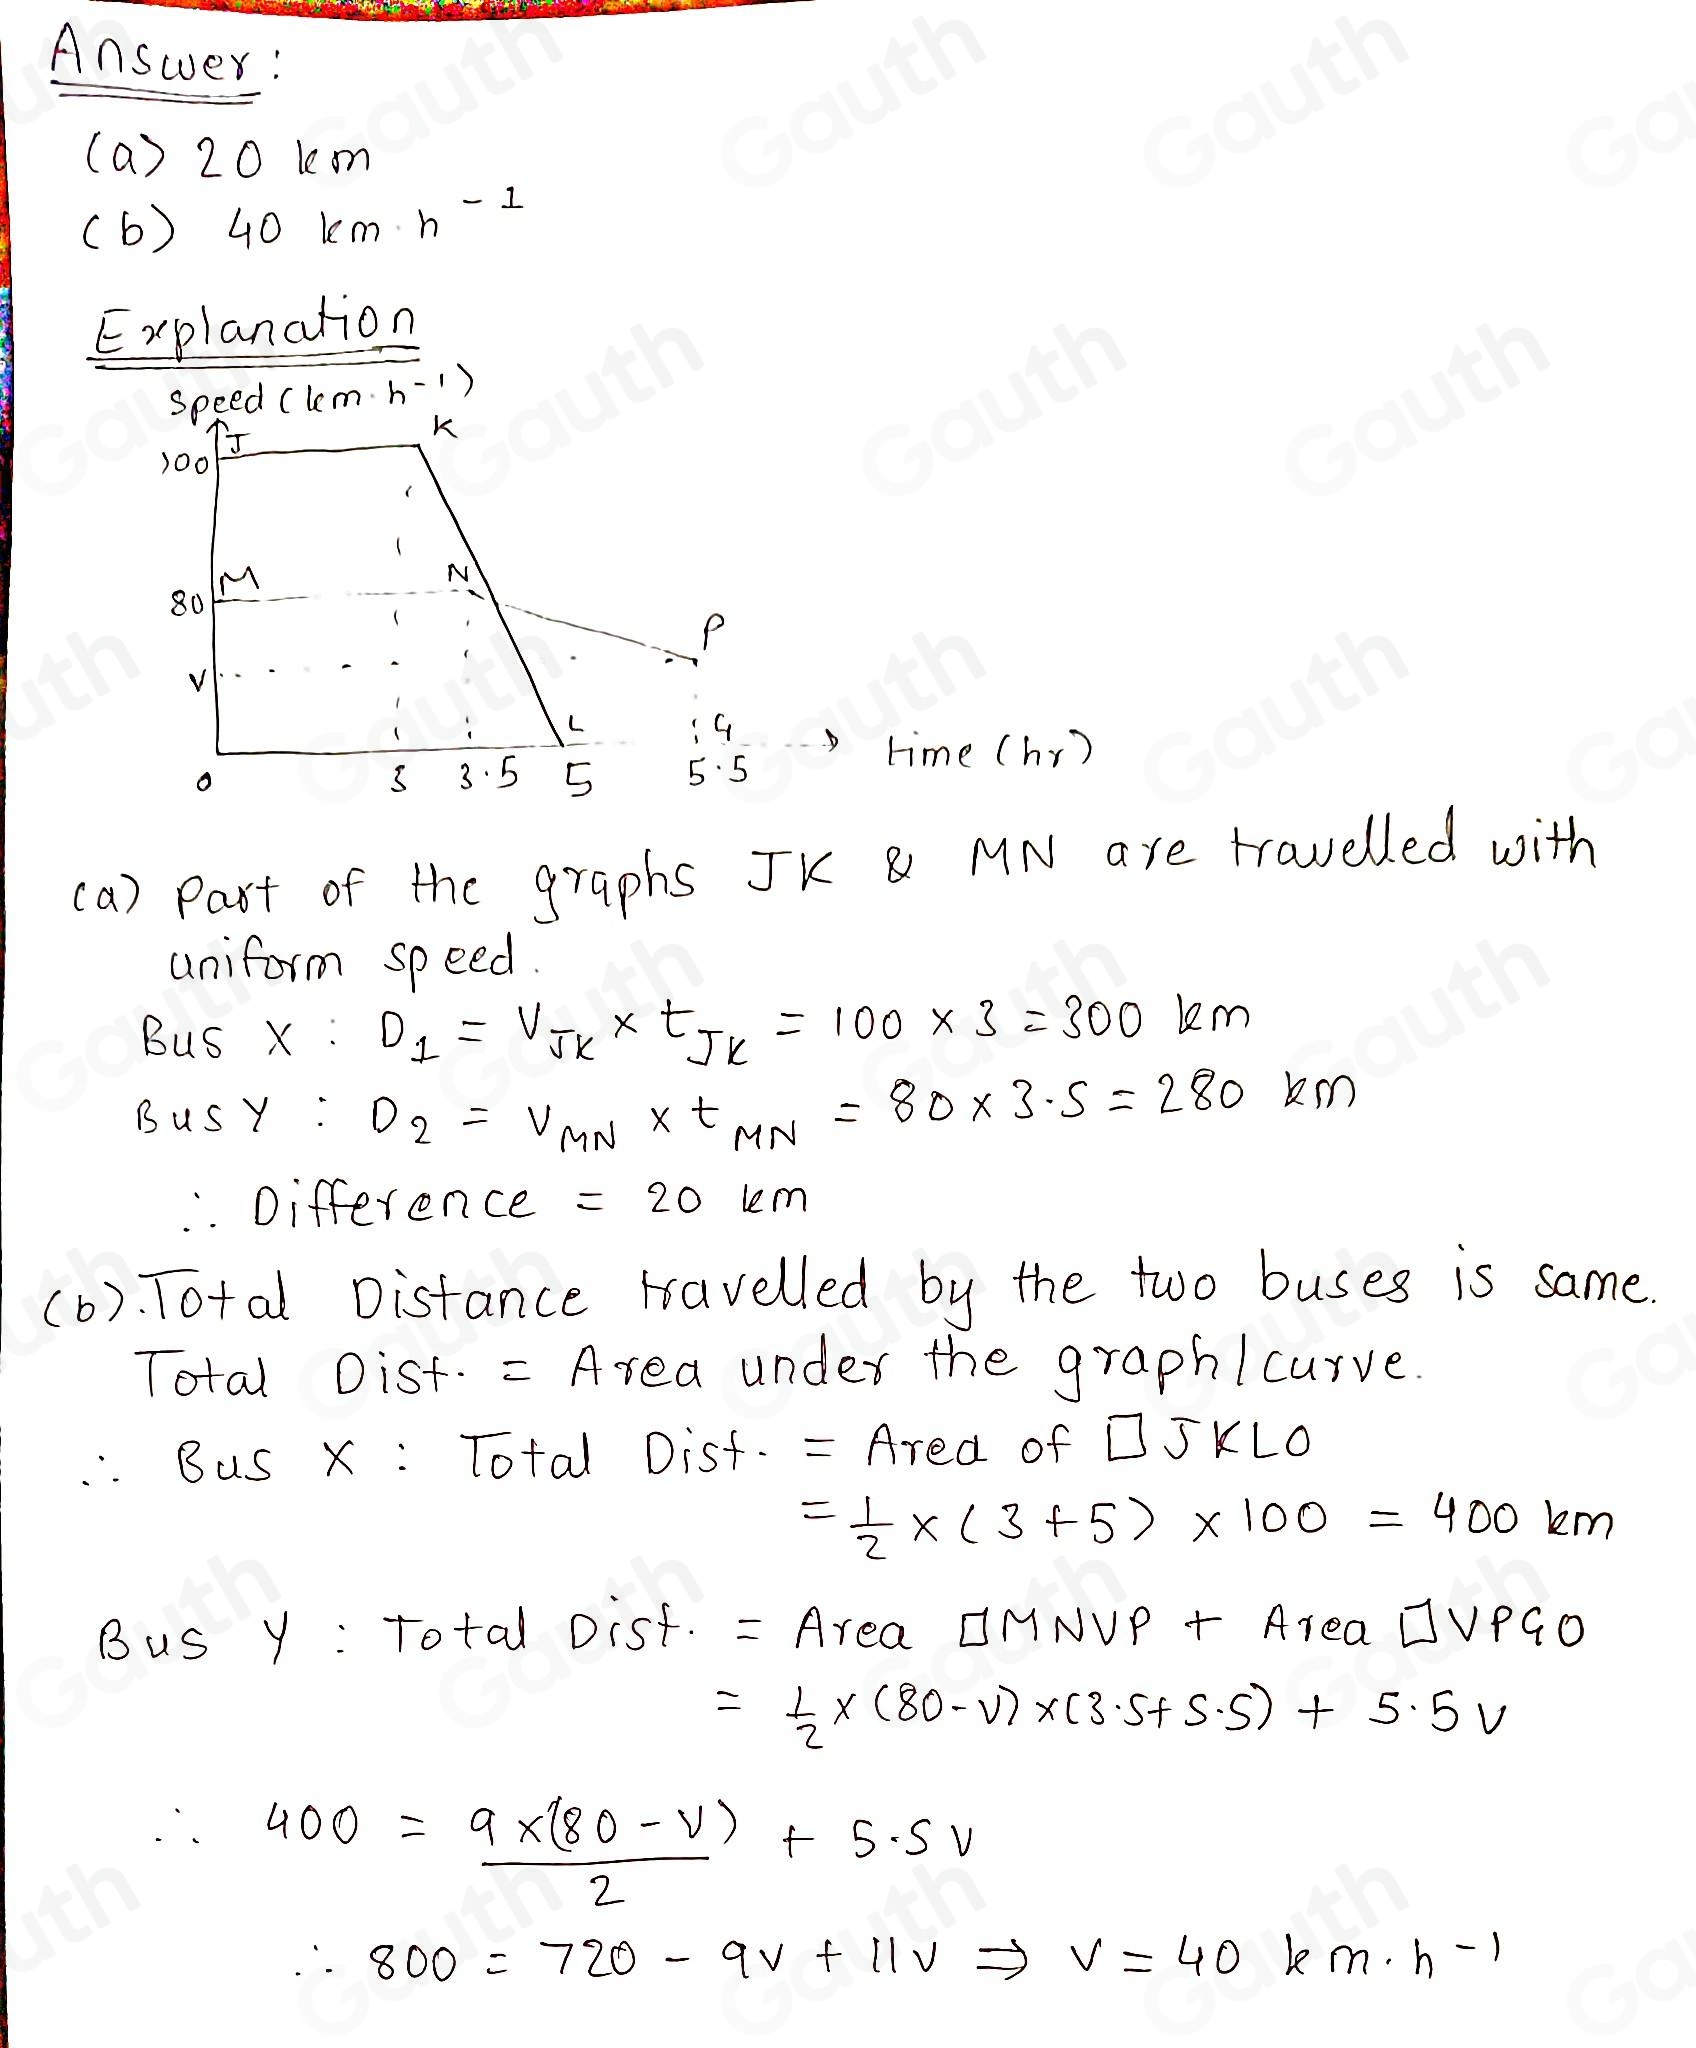 Answer:
(a) 20 km
(b) 40 km·h⁻¹
Explanation
Speed (km·h⁻¹)
J
K
100
M
N
80
P
V
L
G
time (hr)
0 3 3.5 5 5.5
(a) Part of the graphs JK & MN are travelled with
uniform speed.
Bus X : D₁ = V_JK × t_JK = 100 × 3 = 300 km
Bus Y : D₂ = V_MN × t_MN = 80 × 3.5 = 280 km
∴ Difference = 20 km
(b). Total Distance travelled by the two buses is same.
Total Dist. = Area under the graph/curve.
∴ Bus X : Total Dist. = Area of □JKLO
= 1/2 × (3+5) × 100 = 400 km
Bus Y : Total Dist. = Area □MNVP + Area □VPGO
= 1/2 × (80-V) × (3.5+5.5) + 5.5V
∴ 400 = 9×(80-V)/2 + 5.5V
∴ 800 = 720 - 9V + 11V ⇒ V = 40 km·h⁻¹
Gauth